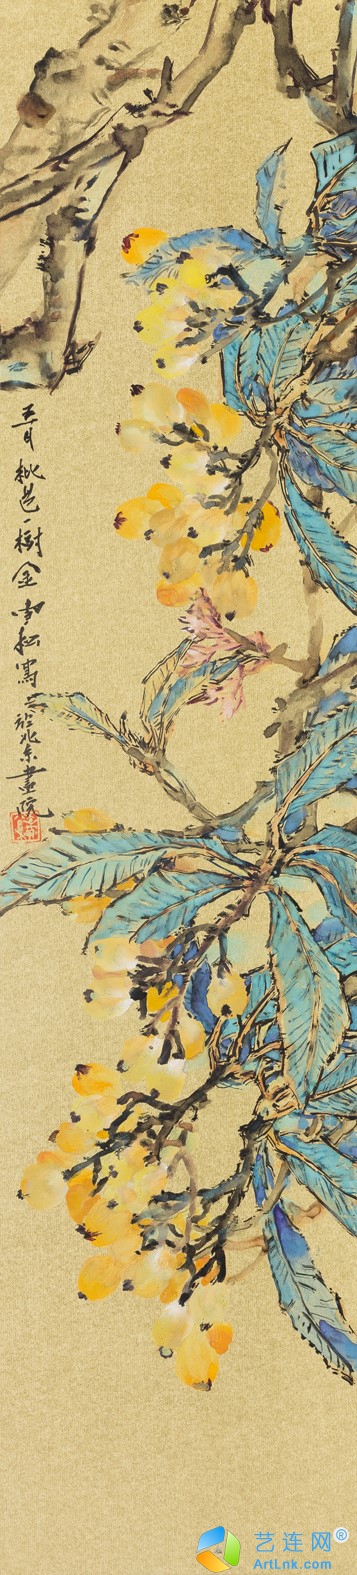 五月枇杷一樹金雪松寫於北京畫院
艺连网®
ArtLnk.com